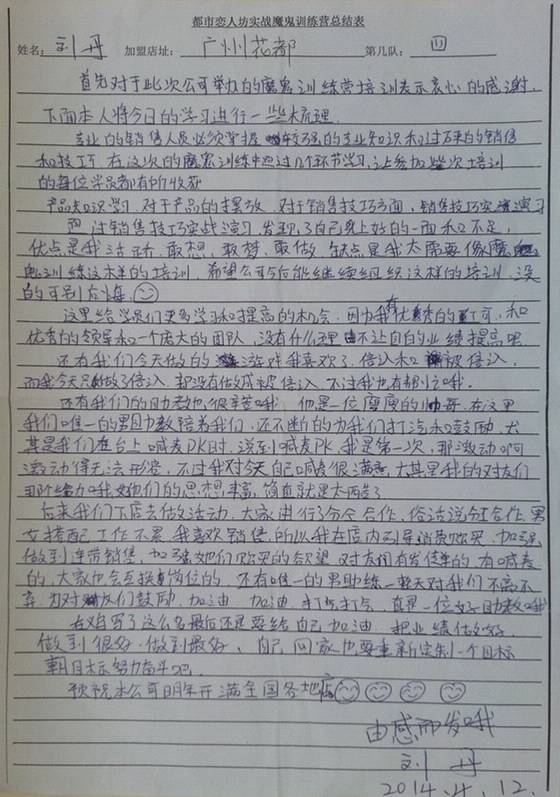 都市恋人坊实战魔鬼训练营总结表
姓名: 刘丹 加盟店址: 广州花都 第几队: 四
首先对于此次公司举办的魔鬼训练营培训表示衷心的感谢.
下面本人将今日的学习进行一些梳理.
专业的销售人员必须掌握较强的专业知识和过硬的销售
和技巧 在这次的魔鬼训练中通过几个环节学习,让参加此次培训
的每位学员都有所收获
产品知识学习 对于产品的摆放 对于销售技巧方面,销售技巧实演习
过销售技巧实战演习 发现了自己身上好的一面和不足,
优点是我活跃 敢想 敢梦 敢做 缺点是我太需要像魔
鬼训练这样的培训 希望公司今后能继续组织这样的培训,没
的可别后悔.
这里给学员们更多学习和提高的机会 因为我有优秀的公司 和
优秀的领导和一个庞大的团队,没有什么理由不让自的业绩提高吧
还有我们今天做的游戏我喜欢了 信认和被信认,
而我今天只做了信认 都没有做成被信认 不过我也有都哦.
还有我们的助教也很辛苦哦 他是一位的帅哥 在这里
我们唯一的男助教陪着我们 还不断的为我们打汽和鼓励,尤
其是我们在台上喊麦PK时 说到喊麦PK 我是第一次,那激动啊
激动得无法形容,不过我对今天自己喊麦很满意 尤其里我的对友们
哦,她们的思想丰富,简直就是太
后来我们下店去做活动 大家进行了分合作 俗话说分工合作 男
女搭配工作不累 我喜欢销售,所以我在店内引导消费购买 加强
做到连带销售 加强她们购买的欲望 对友们有发传单的 有喊麦
的,大家也会互换岗位的 还有唯一的男助练一整天对我们不离不
弃 为对友们鼓励,加油 加油 打打点 真是一位好助教哦
在次写了这么多最后还是要给自己加油 把业绩做好
做到很好.做到最好. 自己回家也要重新定制一个目标
朝目标努力奋斗吧
预祝本公司明年开满全国各地店
由感而发哦
刘丹
2014.4.12.